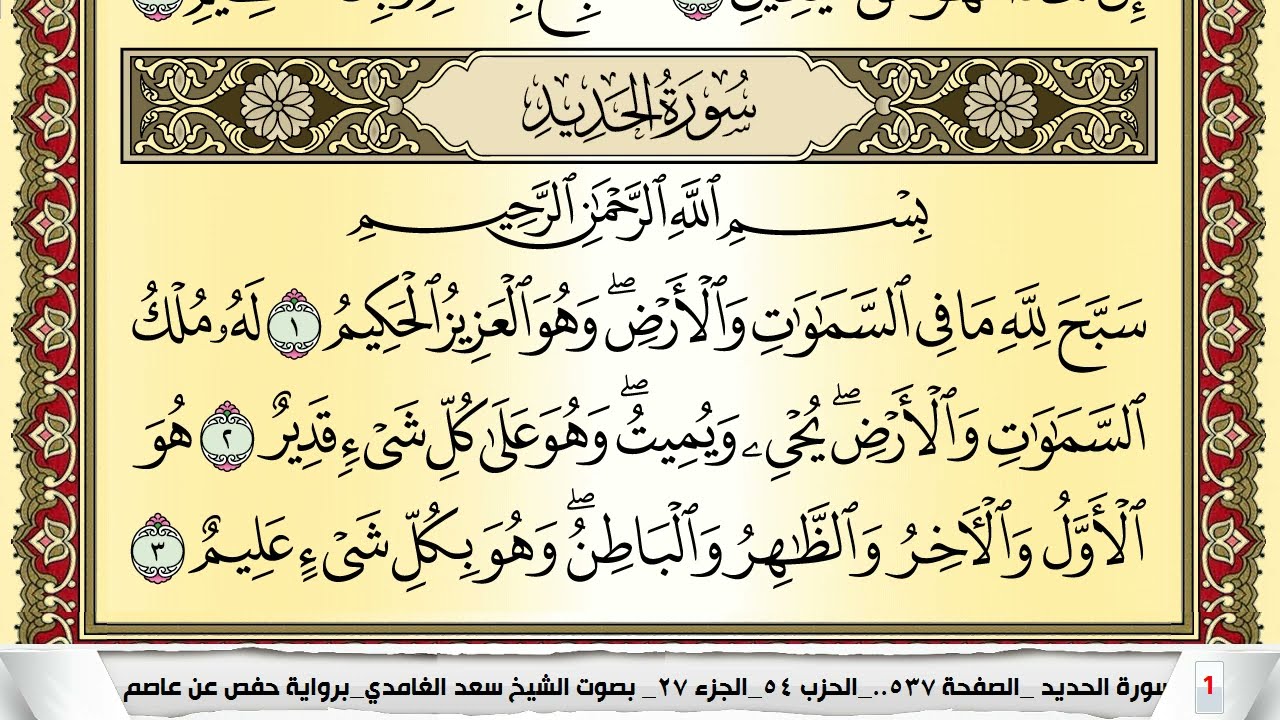 سُورَةُ الحَدِيدِ
بِسْمِ ٱللَّهِ ٱلرَّحْمَٰنِ ٱلرَّحِيمِ
سَبَّحَ لِلَّهِ مَا فِى ٱلسَّمَٰوَٰتِ وَٱلْأَرْضِ ۖ وَهُوَ ٱلْعَزِيزُ ٱلْحَكِيمُ ١ لَهُۥ مُلْكُ
ٱلسَّمَٰوَٰتِ وَٱلْأَرْضِ ۖ يُحْىِۦ وَيُمِيتُ ۖ وَهُوَ عَلَىٰ كُلِّ شَىْءٍ قَدِيرٌ ٢ هُوَ
ٱلْأَوَّلُ وَٱلْـَٔاخِرُ وَٱلظَّٰهِرُ وَٱلْبَاطِنُ ۖ وَهُوَ بِكُلِّ شَىْءٍ عَلِيمٌ ٣
1 سورة الحديد _الصفحة ٥٣٧.._الحزب ٥٤_الجزء ٢٧_ بصوت الشيخ سعد الغامدي_برواية حفص عن عاصم